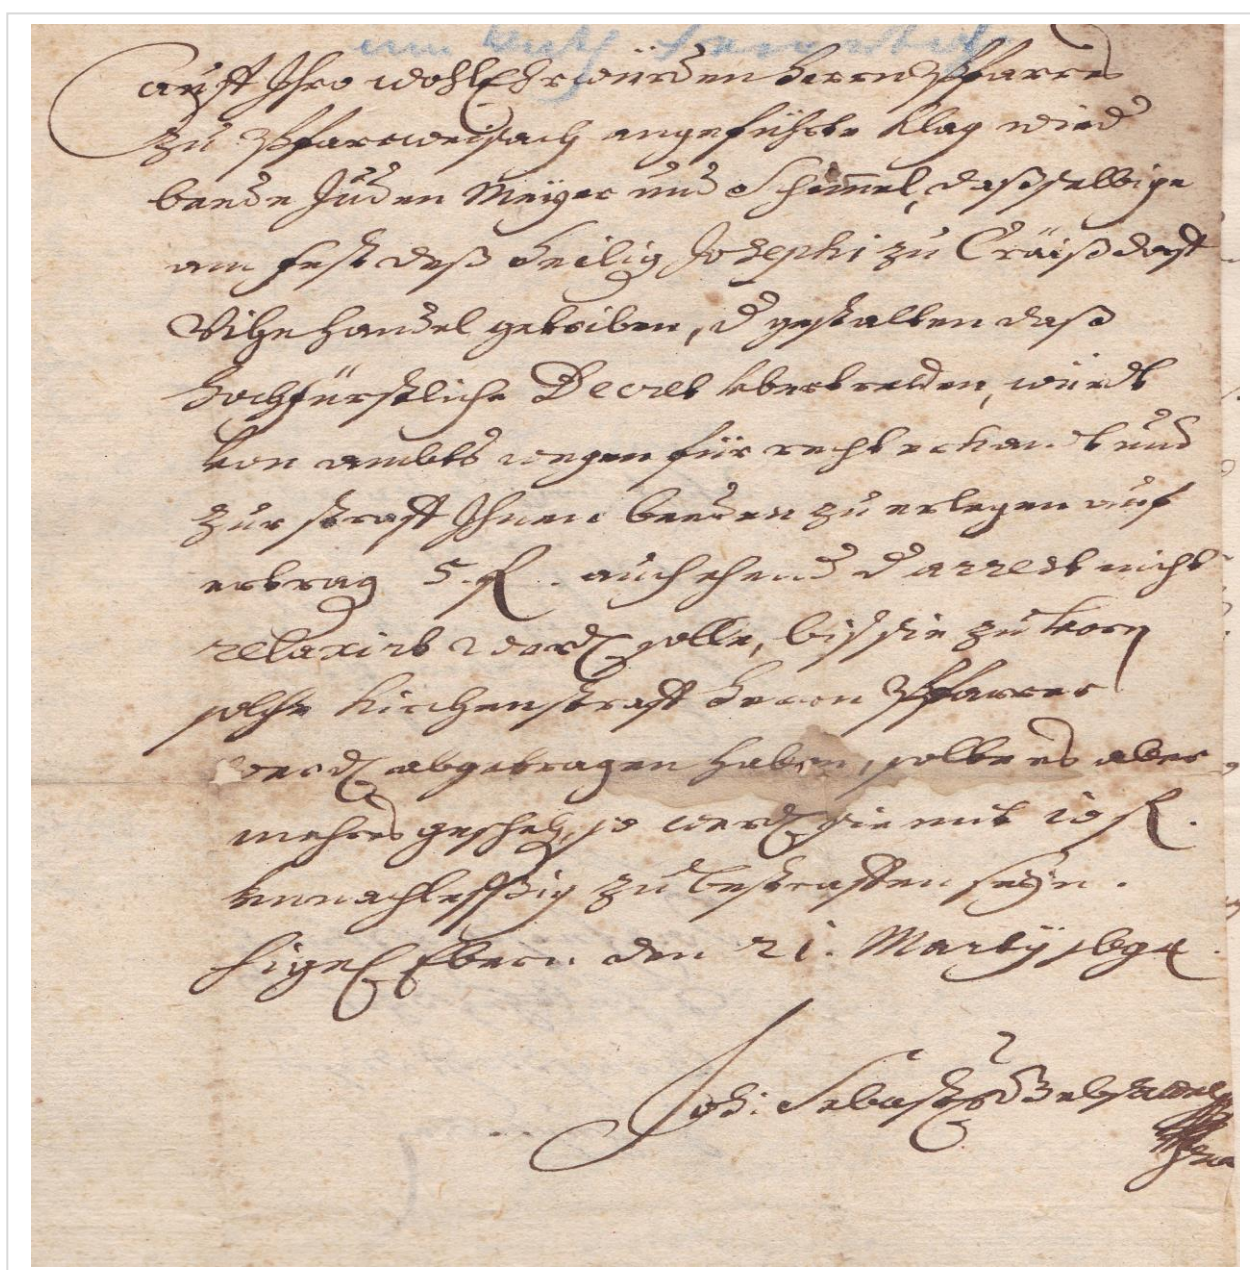 Auff Ihro wohl Ehrwürden Herrn Pfarrers
zu Pfarrweisach angeführte klag wied
beede Juden Meÿer und Schimmel, daß selbige
am fest deß Heilig Josephi zu Craißdorff
Vihe handel getriben, d gestalten daß
Hochfürstliche Decret vbertretten, würdt
von ambts wegen für recht erkandt und
zur straff Ihnen beeden zu erlegen auf
ertrag 5 fl. auch ehend d arrest nicht
relaxirt werd solle, bis sie zuvorn
solche Kirchenstraff Herrn Pfarrer
werd abgetragen haben, solte es aber
mehres gescheh, so werd sie mit 10 fl.
vnnachlessig zu bestraffen seÿn.
Ebern den 21. Martÿ 1694.
Joh: Sebast